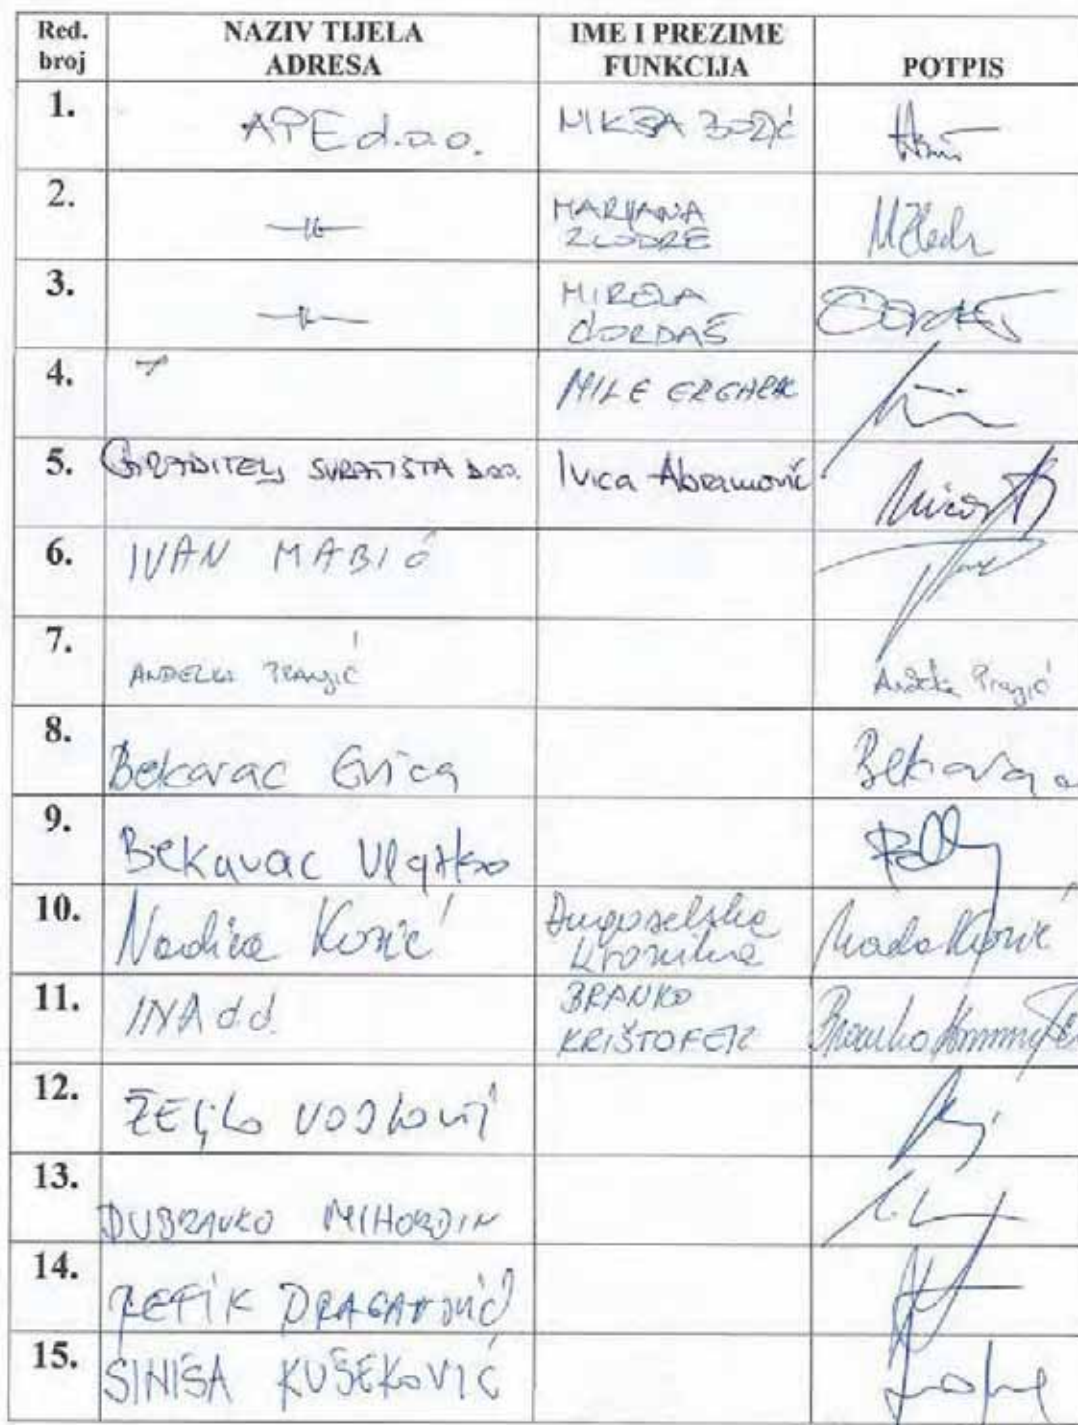 Red. broj NAZIV TIJELA ADRESA IME I PREZIME FUNKCIJA POTPIS
1. APE d.o.o. NIKŠA BOŽIĆ
2. —II— MARIJANA ZLODRE
3. —II— MIRELA ĆORDAŠ
4. MILE
5. GRADITELJ SVRATIŠTA d.o.o. Ivica Abramović
6. IVAN MABIĆ
7. ANĐELKA PRANJIĆ
8. Bekavac Evica Bekavac
9. Bekavac Vlatko
10. Nadica Kozić Dugoselska kronika
11. INA d.d. BRANKO KRIŠTOFEK Branko
12. ŽELJKO VOJKOVIĆ
13. DUBRAVKO MIHORDIN
14. REFIK DRAGANOVIĆ
15. SINIŠA KUŠEKOVIĆ